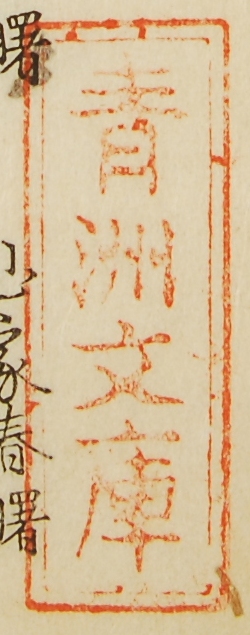 青洲文庫
曙
家春曙